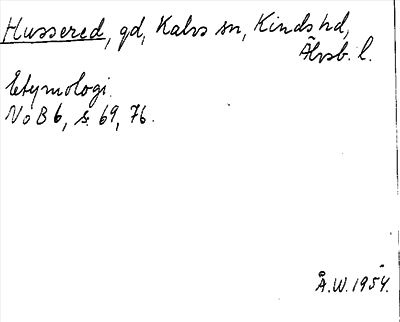 Hussered, gd, Kalvs sn, Kinds hd,
Älvsb. l.
Etymologi.
NoB 6, s. 69, 76.
Å.W. 1954.